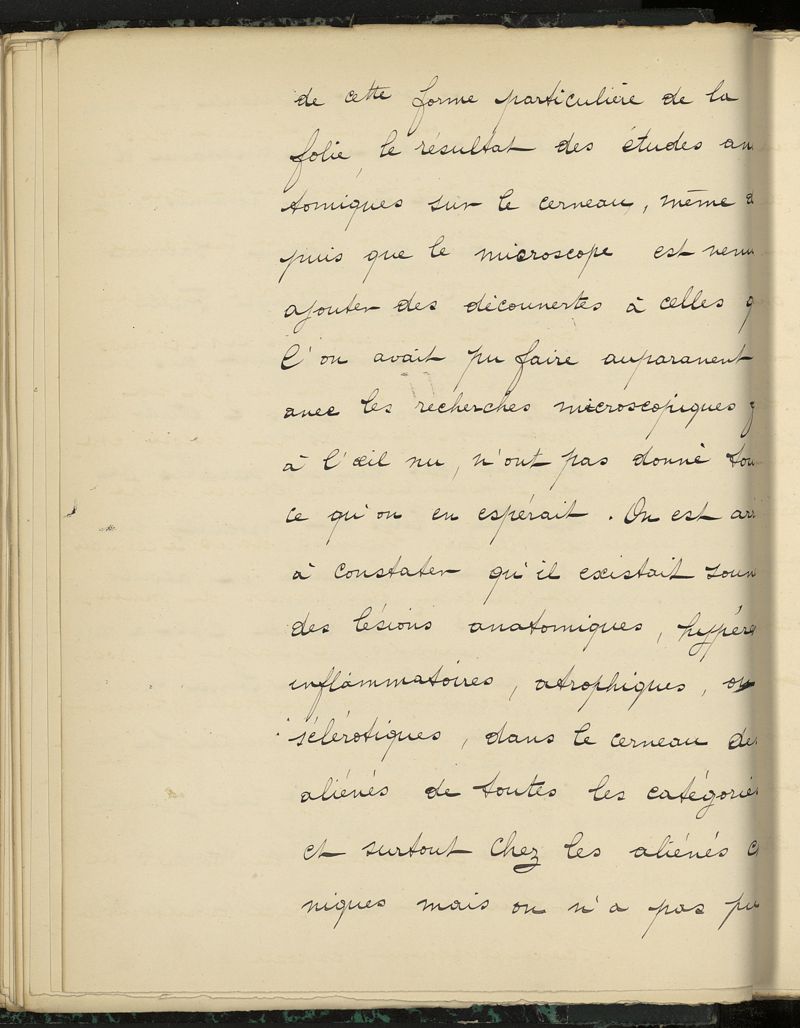 de cette forme particulière de la
folie, le résultat des études an
tomiques sur le cerveau, même d
puis que le microscope est venu
ajouter des découvertes à celles q
l'on avait pu faire auparavent
avec les recherches microscopiques
à l'œil nu, n'ont pas donné tou
ce qu'on en espérait. On est arri
à constater qu'il existait souv
des lésions anatomiques, hypére
inflammatoires, atrophiques, ou
sélérotiques, dans le cerveau des
aliénés de toutes les catégories
et surtout chez les aliénés c
niques mais on n'a pas pu